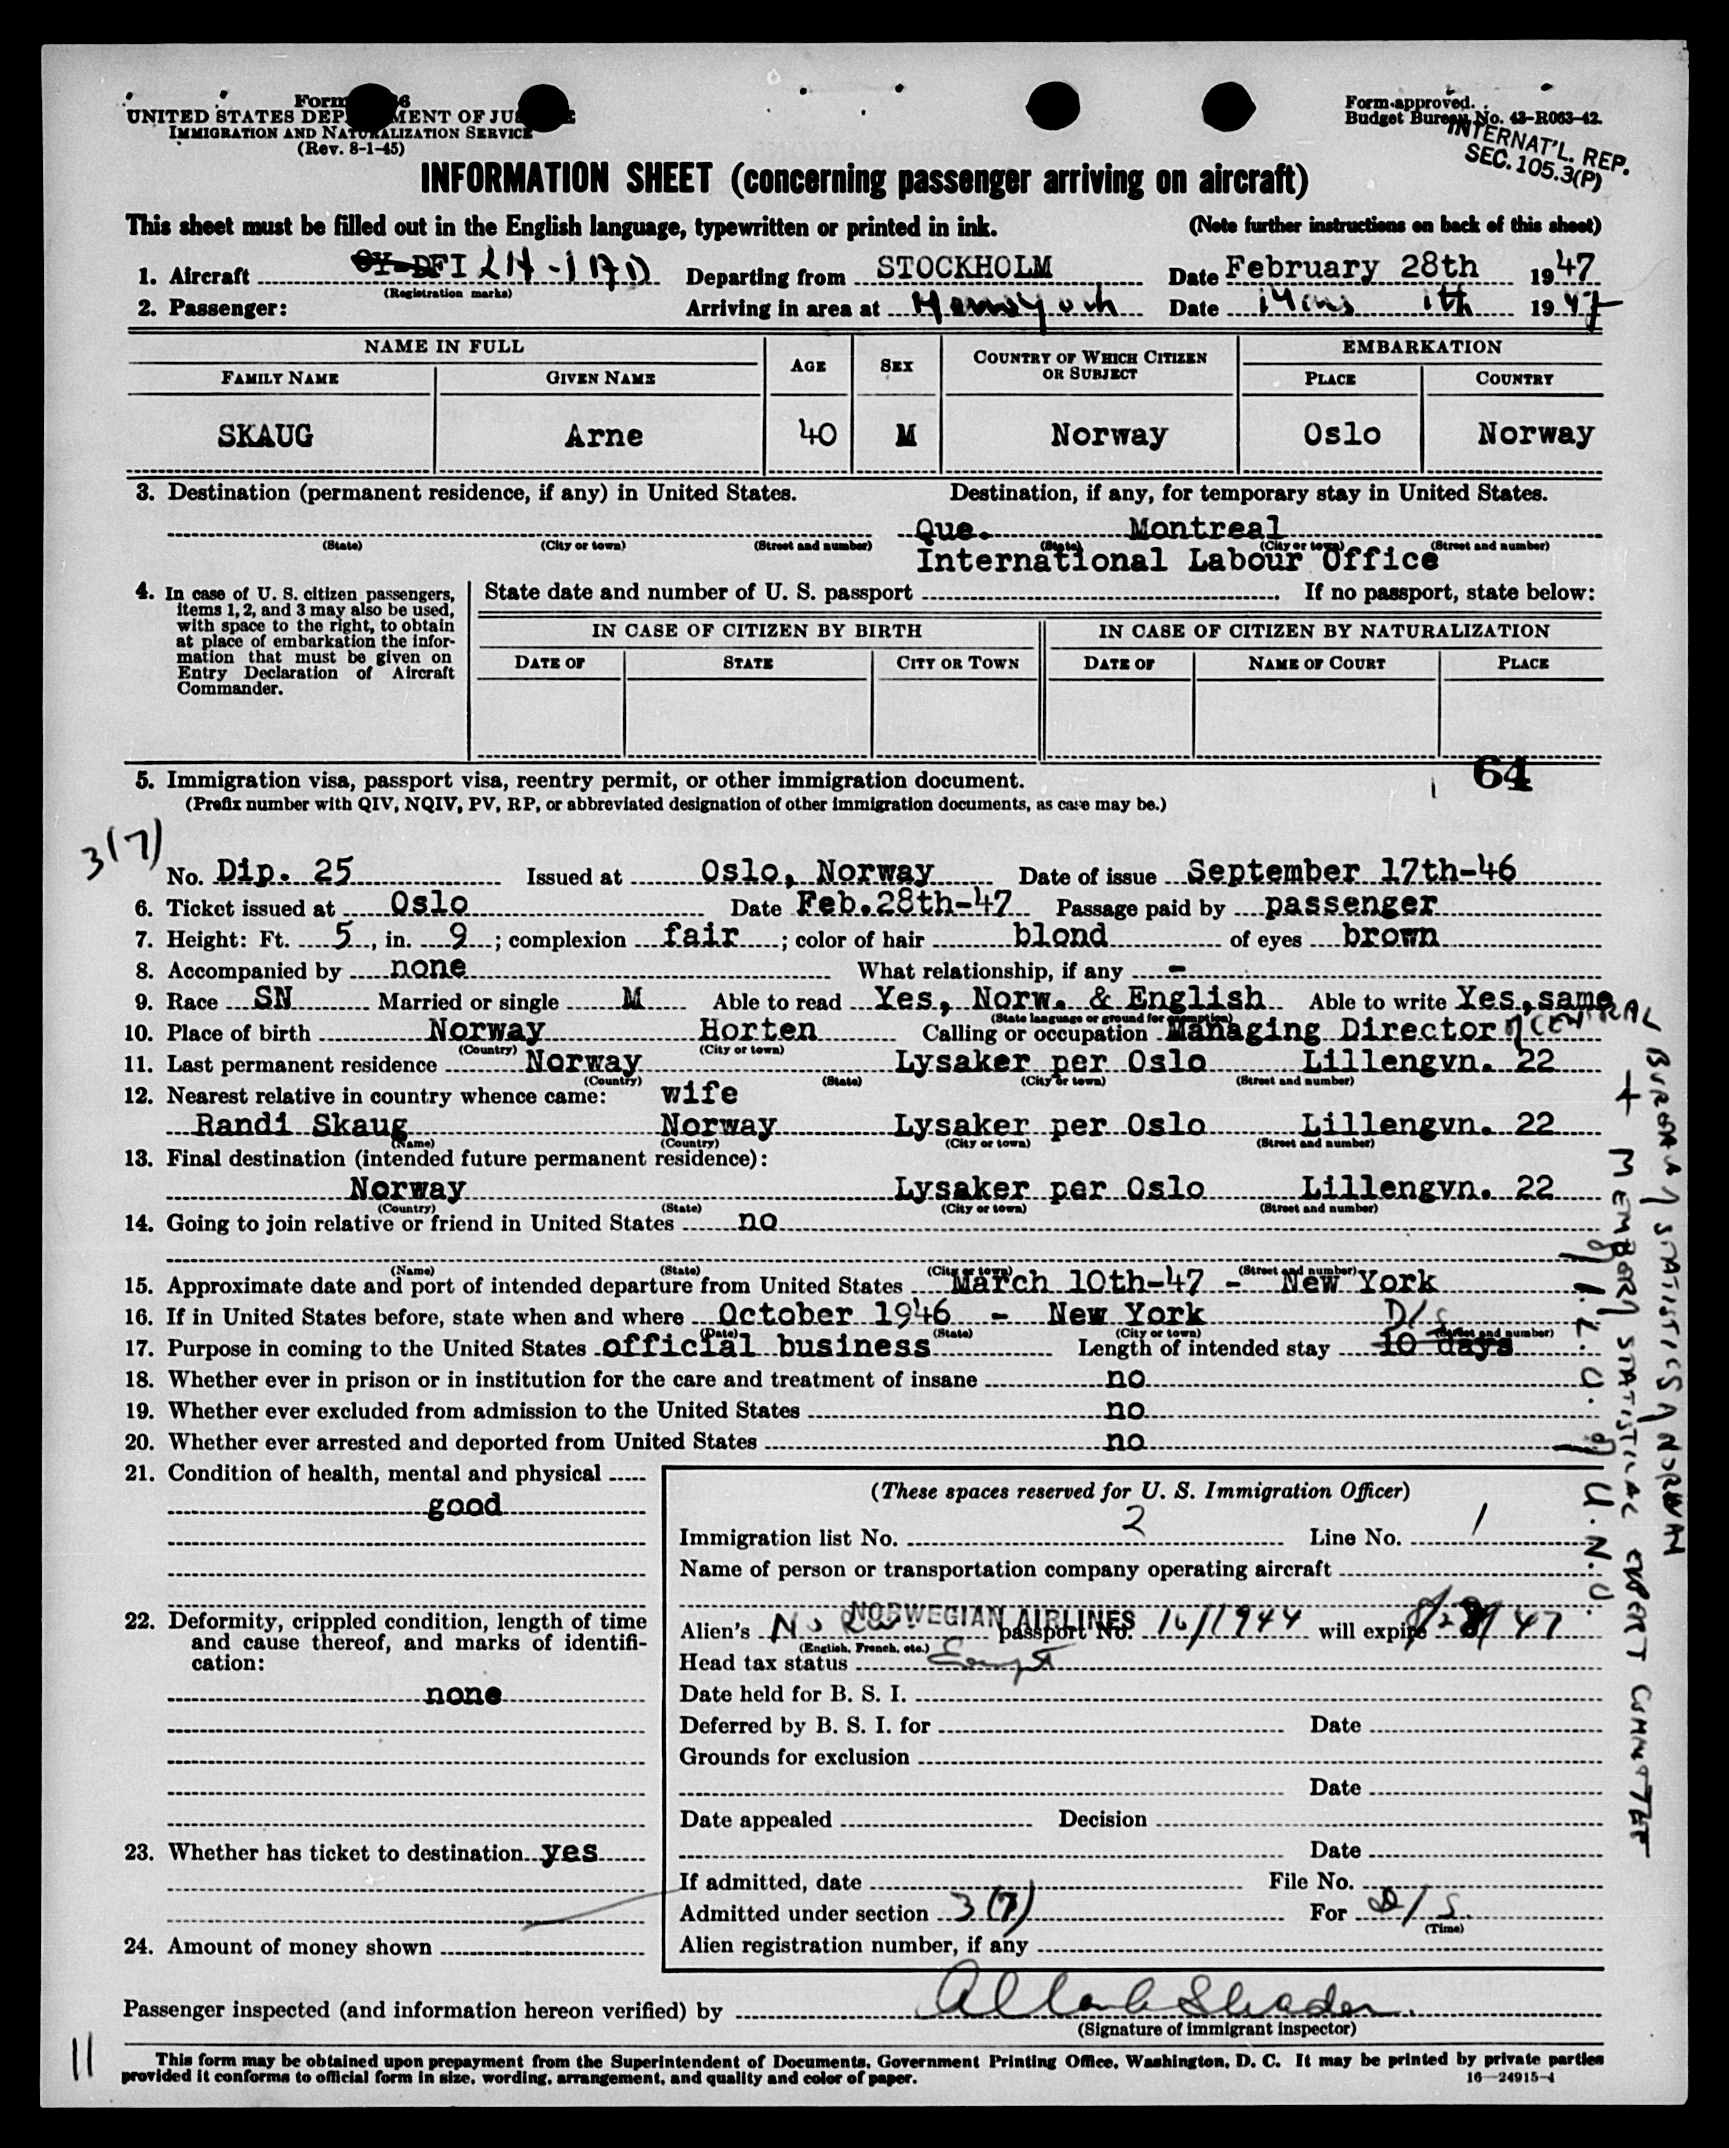 Form
UNITED STATES DEP MENT OF JU
IMMIGRATION AND NATURALIZATION SERVICE
(Rev. 8-1-45)
Form approved.
Budget Bureau No. 43-R063-42.
INTERNAT'L. REP.
SEC. 105.3(P)
INFORMATION SHEET (concerning passenger arriving on aircraft)
This sheet must be filled out in the English language, typewritten or printed in ink. (Note further instructions on back of this sheet)
1. Aircraft Departing from STOCKHOLM Date February 28th 1947
(Registration marks)
2. Passenger: Arriving in area at Date 1947
NAME IN FULL AGE SEX COUNTRY OF WHICH CITIZEN OR SUBJECT EMBARKATION
FAMILY NAME GIVEN NAME PLACE COUNTRY
SKAUG Arne 40 M Norway Oslo Norway
3. Destination (permanent residence, if any) in United States. Destination, if any, for temporary stay in United States.
Que. Montreal
(State) (City or town) (Street and number) (State) (City or town) (Street and number)
International Labour Office
4. In case of U. S. citizen passengers, items 1, 2, and 3 may also be used, with space to the right, to obtain at place of embarkation the information that must be given on Entry Declaration of Aircraft Commander.
State date and number of U. S. passport . If no passport, state below:
IN CASE OF CITIZEN BY BIRTH IN CASE OF CITIZEN BY NATURALIZATION
DATE OF STATE CITY OR TOWN DATE OF NAME OF COURT PLACE
64
5. Immigration visa, passport visa, reentry permit, or other immigration document.
(Prefix number with QIV, NQIV, PV, RP, or abbreviated designation of other immigration documents, as case may be.)
3(7)
No. Dip. 25 Issued at Oslo, Norway Date of issue September 17th-46
6. Ticket issued at Oslo Date Feb.28th-47 Passage paid by passenger
7. Height: Ft. 5, in. 9; complexion fair; color of hair blond of eyes brown
8. Accompanied by none What relationship, if any -
9. Race SN Married or single M Able to read Yes, Norw. & English Able to write Yes, same
(State language or ground for exemption)
10. Place of birth Norway Horten Calling or occupation Managing Director
(Country) (City or town)
11. Last permanent residence Norway Lysaker per Oslo Lillengvn. 22
(Country) (State) (City or town) (Street and number)
12. Nearest relative in country whence came: wife
Randi Skaug Norway Lysaker per Oslo Lillengvn. 22
(Name) (Country) (City or town) (Street and number)
13. Final destination (intended future permanent residence):
Norway Lysaker per Oslo Lillengvn. 22
(Country) (State) (City or town) (Street and number)
14. Going to join relative or friend in United States no
(Name) (State) (City or town) (Street and number)
15. Approximate date and port of intended departure from United States March 10th-47 - New York
16. If in United States before, state when and where October 1946 - New York
(Date) (State) (City or town) (Street and number)
D/S
17. Purpose in coming to the United States official business Length of intended stay 10 days
18. Whether ever in prison or in institution for the care and treatment of insane no
19. Whether ever excluded from admission to the United States no
20. Whether ever arrested and deported from United States no
CENTRAL BUREAU OF STATISTICS OF NORWAY
+ MEMBER OF STATISTICAL EXPERT COMMITTEE
OF I.L.O. OF U.N.O.
21. Condition of health, mental and physical
good
22. Deformity, crippled condition, length of time and cause thereof, and marks of identification:
none
23. Whether has ticket to destination yes
24. Amount of money shown
(These spaces reserved for U. S. Immigration Officer)
Immigration list No. 2 Line No. 1
Name of person or transportation company operating aircraft
NORWEGIAN AIRLINES
Alien's passport No. 16/1944 will expire 47
(English, French, etc.)
Head tax status
Date held for B. S. I.
Deferred by B. S. I. for Date
Grounds for exclusion
Date
Date appealed Decision
Date
If admitted, date File No.
Admitted under section 3(7) For D/S.
(Time)
Alien registration number, if any
Passenger inspected (and information hereon verified) by
(Signature of immigrant inspector)
11
This form may be obtained upon prepayment from the Superintendent of Documents, Government Printing Office, Washington, D. C. It may be printed by private parties
provided it conforms to official form in size, wording, arrangement, and quality and color of paper.
16—24915-4